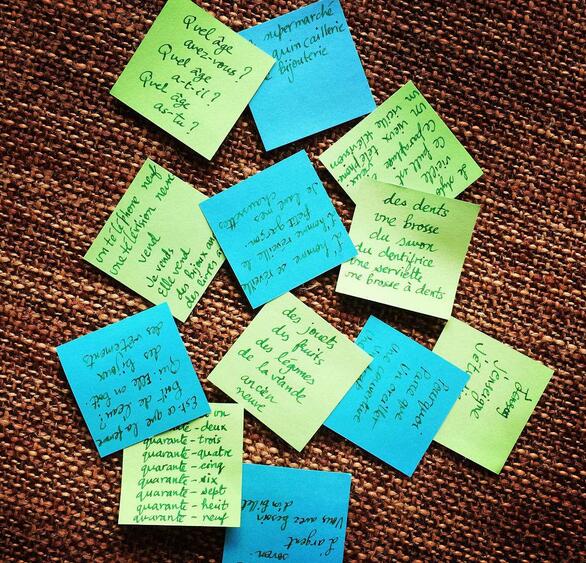 Quel âge
avez-vous?
Quel âge
a-t-il?
Quel âge
as-tu?
supermarché
quincaillerie
bijouterie
un vieux téléphone
des dents
une brosse
du savon
du dentifrice
une serviette
une brosse à dents
un téléphone neuf
une télévision neuve
vend
Je vends
Elle vend
des bijoux
L'homme se réveille
L'homme réveille le
petit garçon.
Je lave mes
chaussettes
des jouets
des fruits
des légumes
de la viande
ancien
neuve
Pourquoi
Parce que
une couverture
J'enseigne
Est-ce que la femme
boit de l'eau?
Qui: Elle en boit
des bijoux
des vêtements
quarante-deux
quarante-trois
quarante-quatre
quarante-cinq
quarante-six
quarante-sept
quarante-huit
quarante-neuf
Vous avez besoin
d'un billet
d'argent
savon